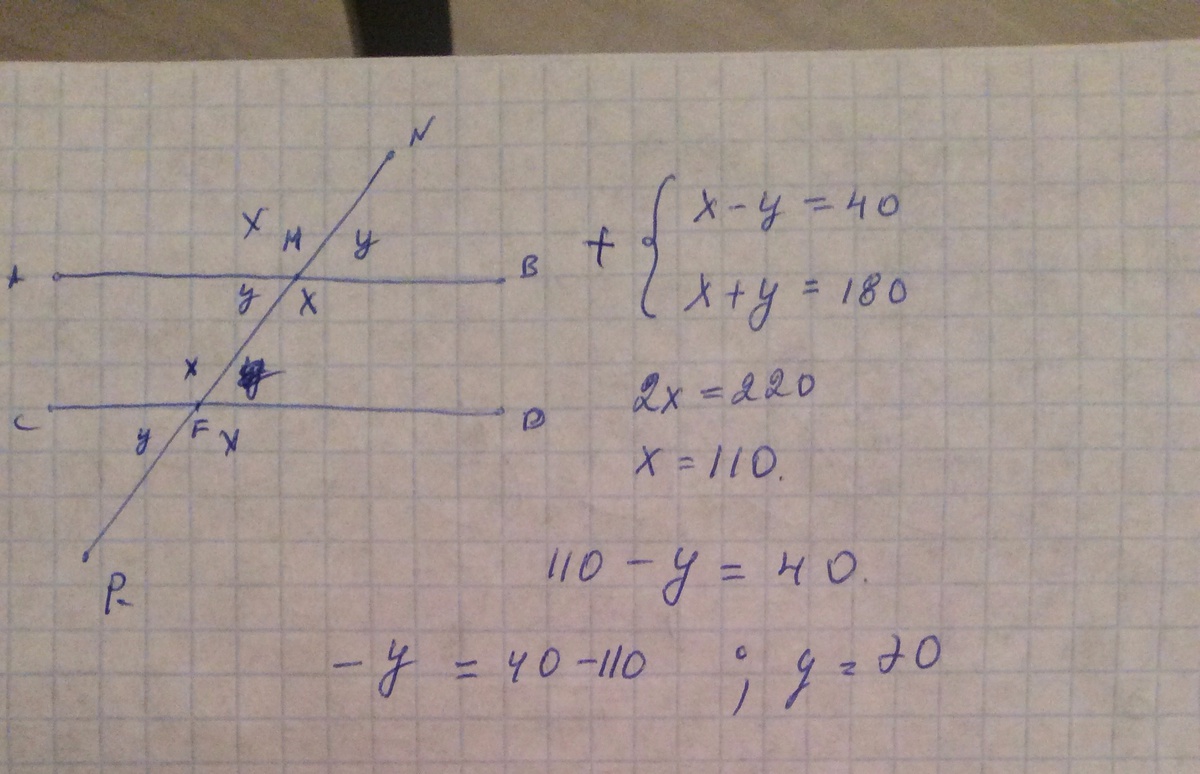 N
X M y
A B
y X
x y
C D
y F X
P
+ { x - y = 40
x + y = 180
2x = 220
x = 110.
110 - y = 40.
- y = 40 - 110 ; y = 70